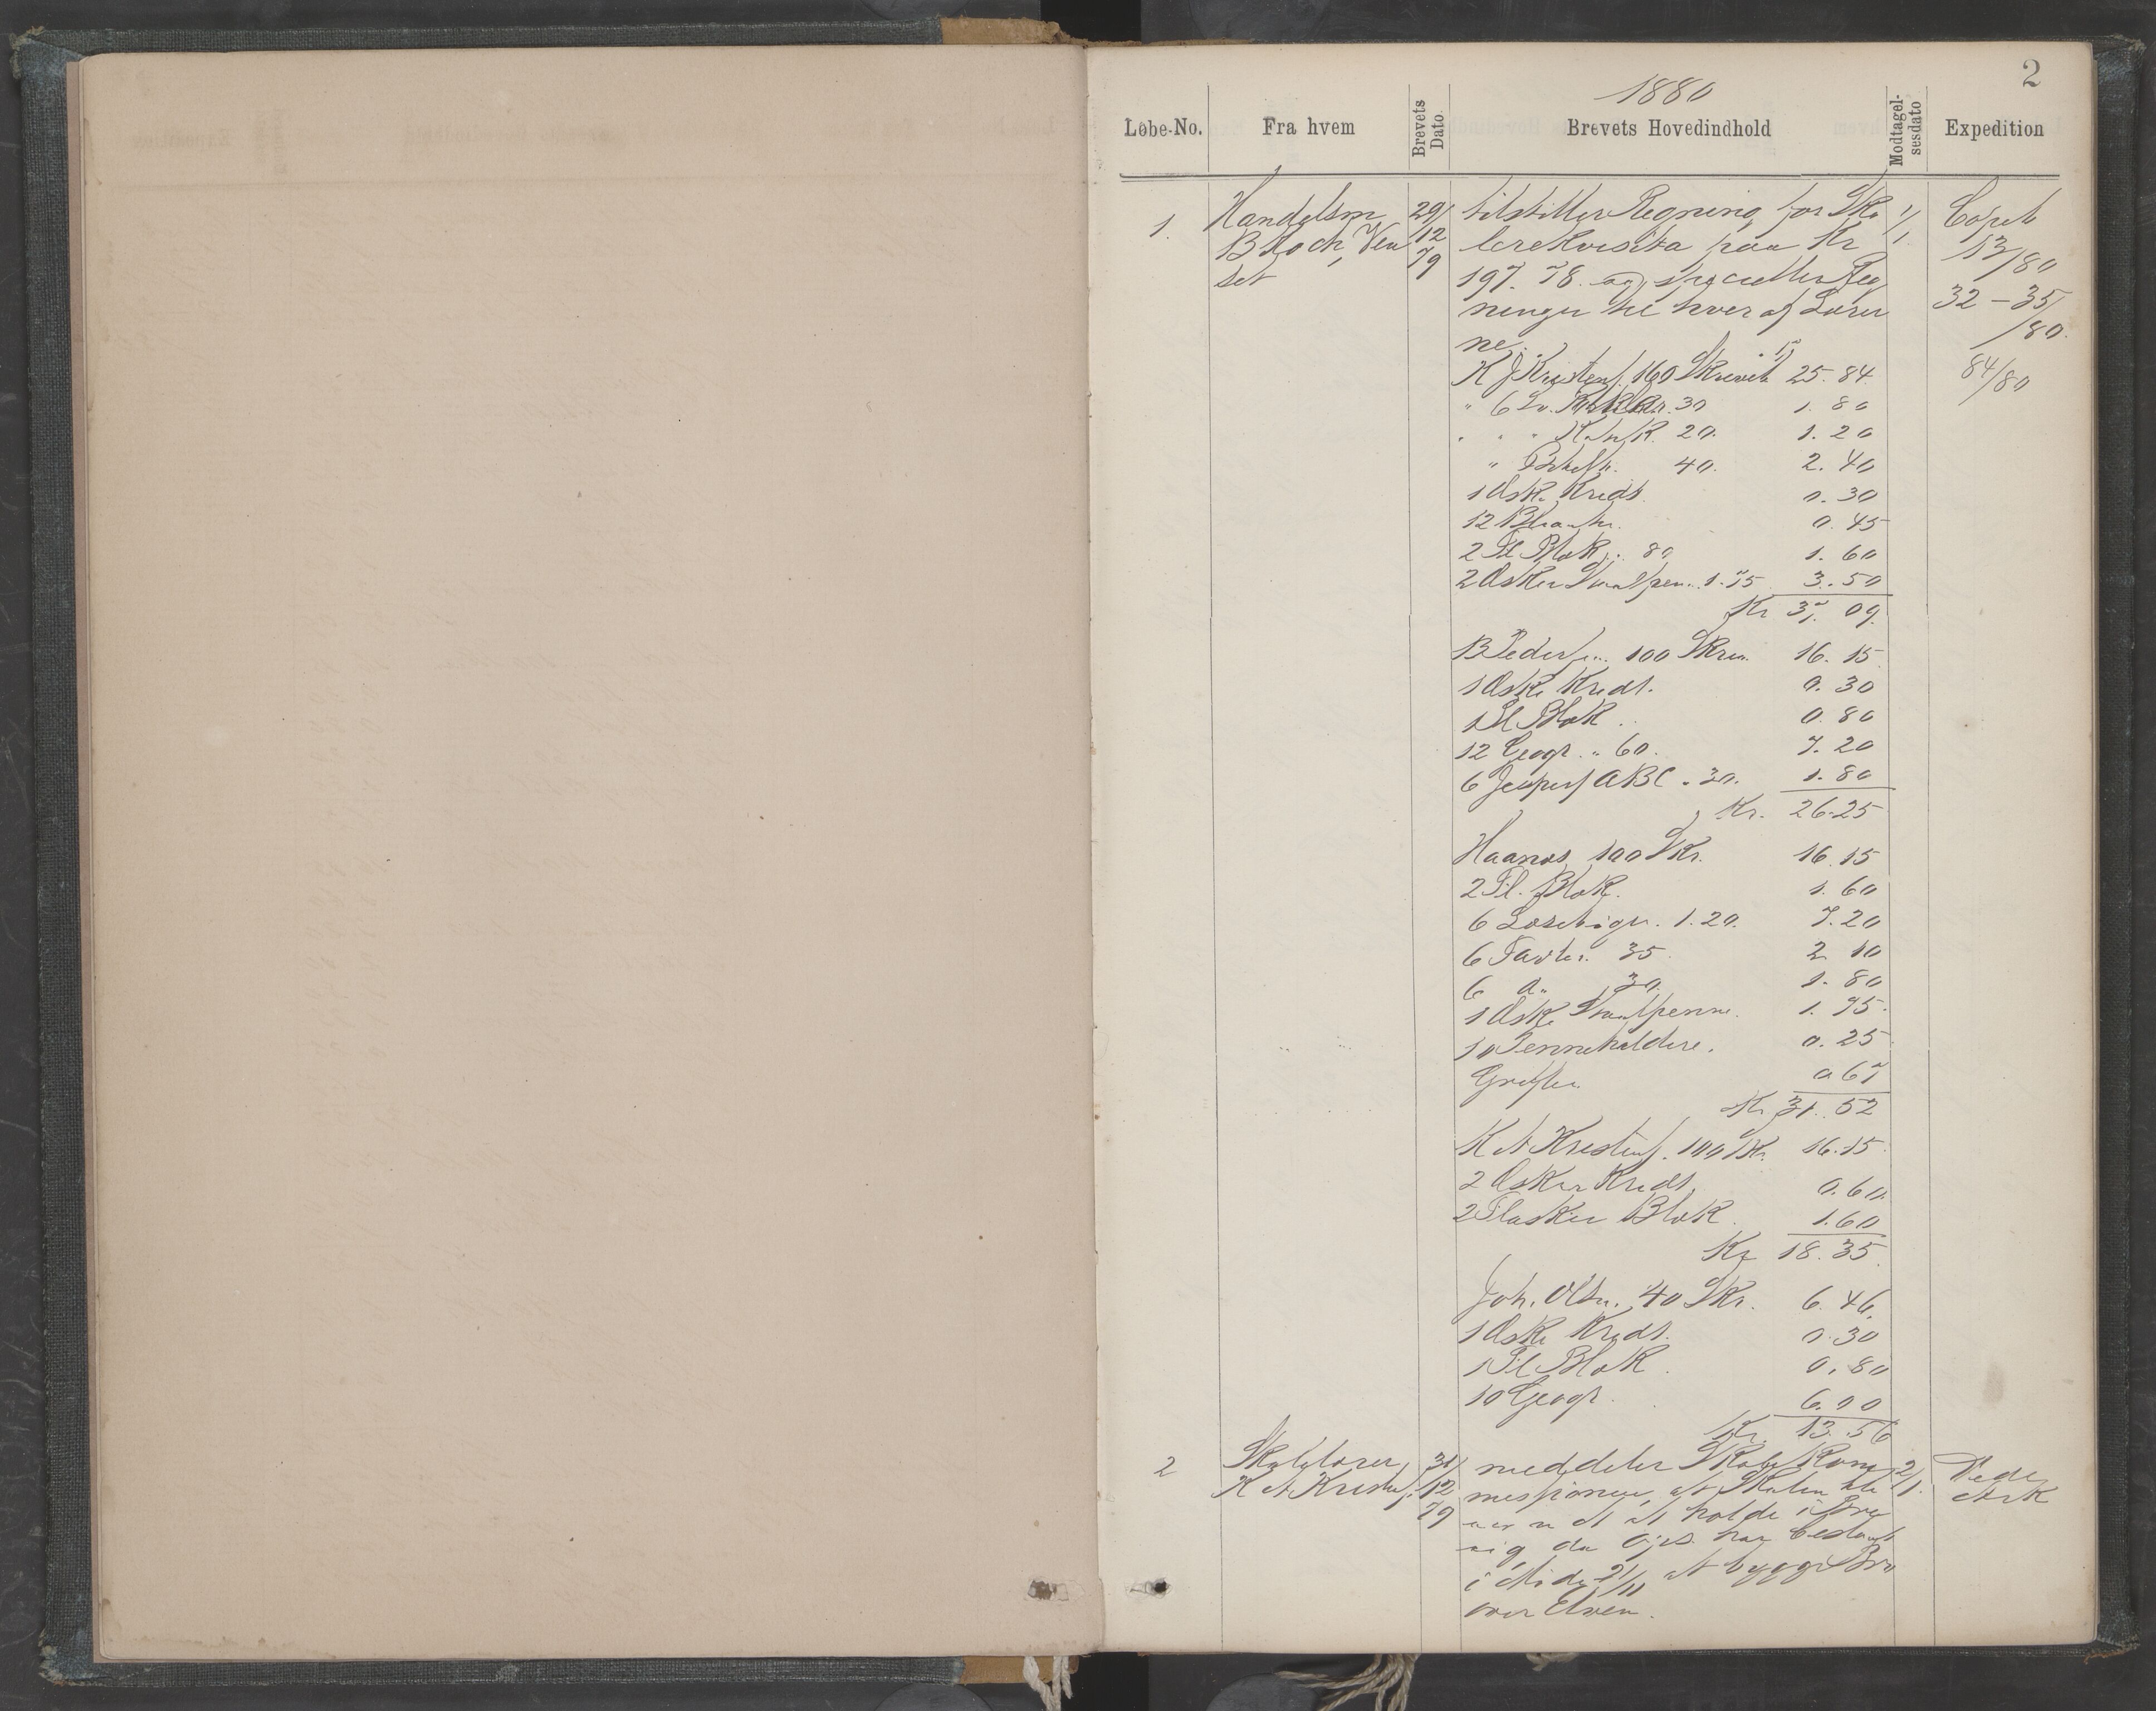 2
1880
Løbe-No. Fra hvem Brevets Dato Brevets Hovedindhold Modtagelsesdato Expedition
1. Handelsm. 29/ tilstiller Regning for Sko 1/ Copieb
B Koch, Ven 12 lerekvisita paa Kr 1. 13/80
set 79 197.78. og specielle Reg 32 – 35/
ninger til hver af Lærer /80.
ne.
K J Kristens. 160 Skreveb. 25.84. 84/80
" 6 Lv. 30 1.80
" " " 20. 1.20
" 40. 2.40
1 Æske Kridt. 0.30
12 0.45
2 Fl Blæk " 80 1.60
2 Æsker Staalpen. 1.75 3.50
Kr 37.09.
B Pedersen. 100 Skrev. 16.15.
1 Æske Kridt. 0.30
1 Fl Blæk .. 0.80
12 Geogr. " 60. 7.20
6 Jespers ABC . 30. 1.80
Kr. 26.25
Haanæs 100 Skr. 16.15
2 Fl. Blæk. 1.60
6 Læsebøger. 1.20. 7.20
6 Tavler. 35. 2.10
6 do. 30. 1.80
1 Æske Staalpenne. 1.75.
10 Penneholdere. 0.25
Grifler 0.67
Kr 31.52
K A Kristens. 100 Skr. 16.15.
2 Æsker Kridt. 0.60.
2 Flasker Blæk. 1.60
Kr 18.35.
Joh. Olsn. 40 Skr. 6.46.
1 Æske Kridt. 0.30
1 Fl Blæk. 0.80
10 Geogr. 6.00
Kr. 13.56
2 Skolelærer 31/ meddeler Skole Kom 2/
K A Kristens. 12 missionen, at Skolen 1.
79 at holde i
da har bestemt
i Møde 21/11 at bygge Bro
over Elven.